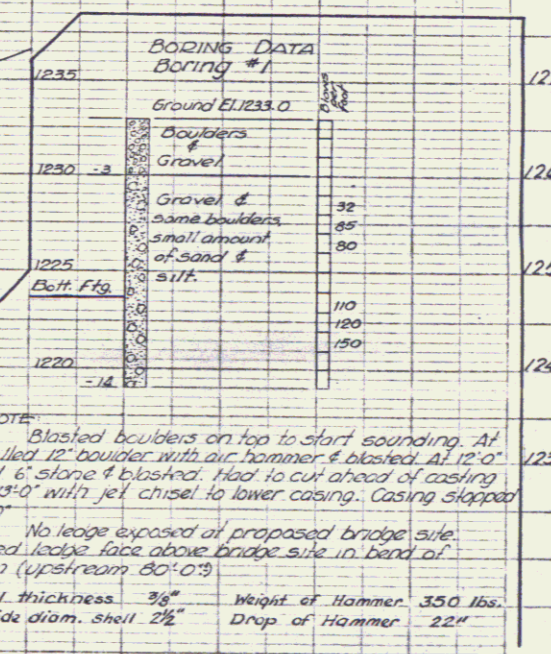 BORING DATA
Boring #1
1235
Ground El. 1233.0
Blows per foot
Boulders
&
Gravel
1230 -3
Gravel &
some boulders,
small amount
of sand &
silt.
32
85
80
1225
Bott. Ftg.
110
120
150
1220
-14
OTE:
Blasted boulders on top to start sounding. At
lled 12" boulder with air hammer & blasted. At 12'-0"
6" stone & blasted. Had to cut ahead of casting
3'-0" with jet chisel to lower casing. Casing stopped
No ledge exposed at proposed bridge site.
ed ledge face above bridge site in bend of
(upstream 80'-0"±)
thickness 3/8" Weight of Hammer 350 lbs.
ide diam. shell 2½" Drop of Hammer 22"